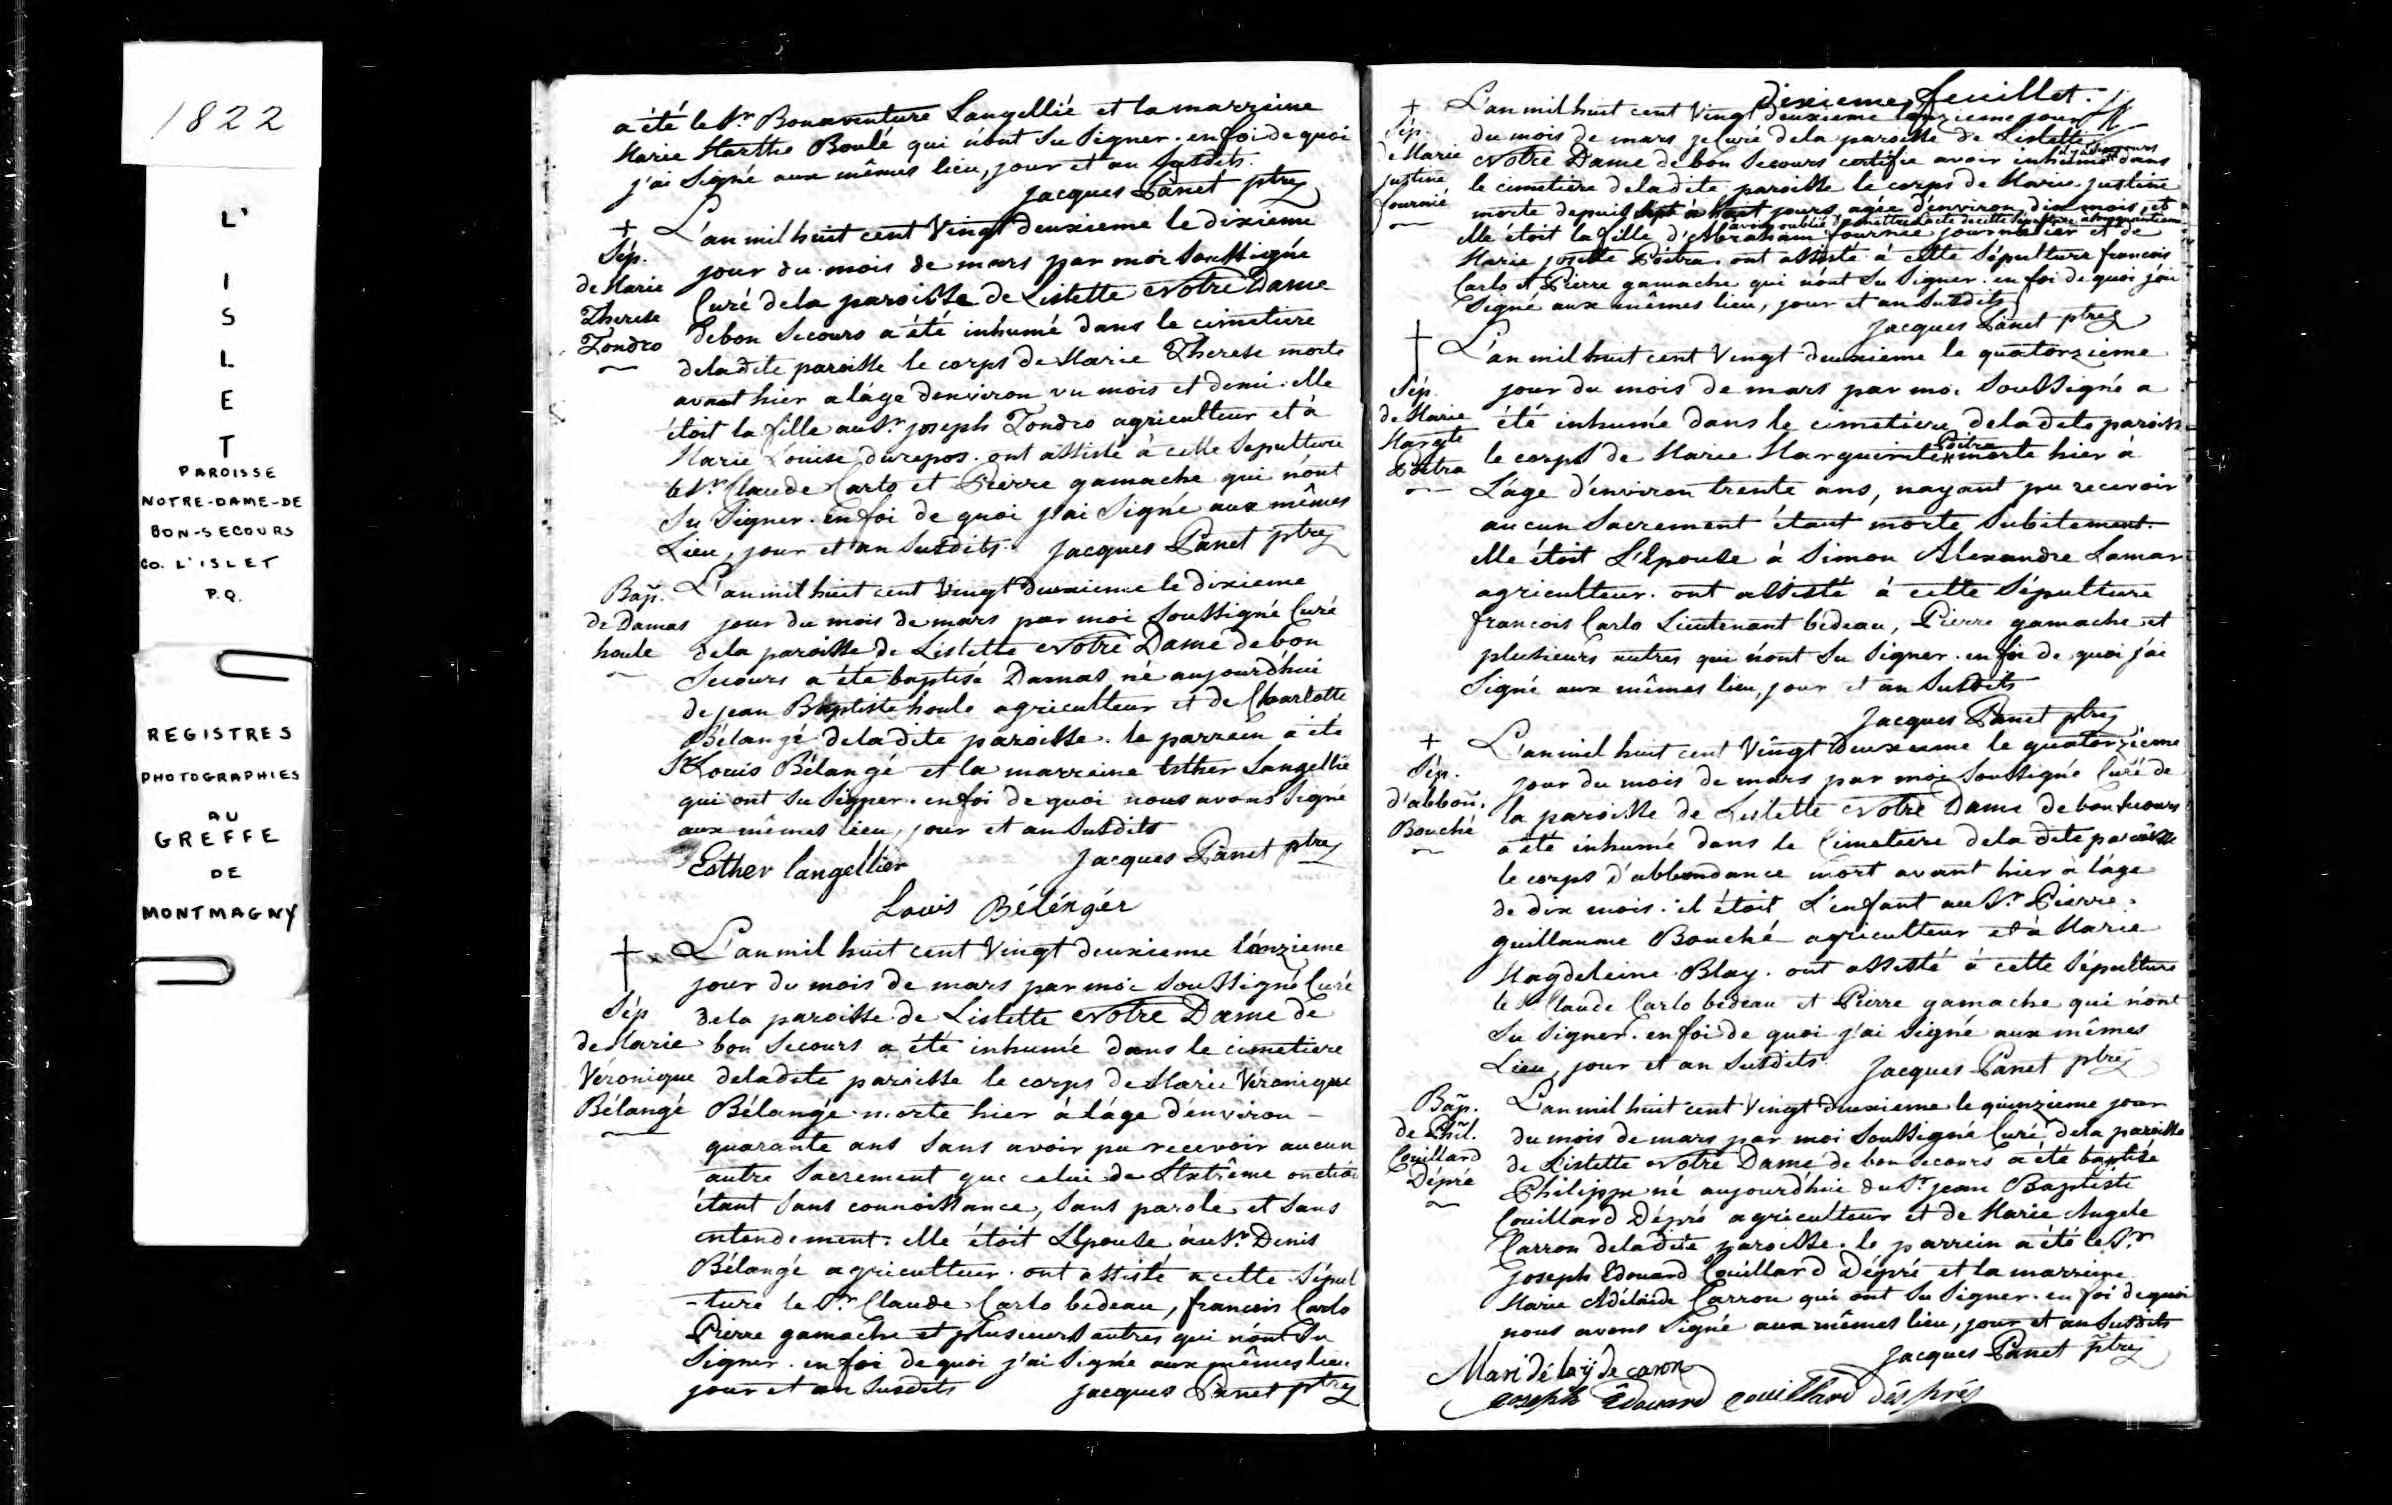 1822
L'
I
S
L
E
T
PAROISSE
NOTRE-DAME-DE
BON-SECOURS
CO. L'ISLET
P.Q.
REGISTRES
PHOTOGRAPHIES
AU
GREFFE
DE
MONTMAGNY
a été le Sr. Bonaventure Langellié et la marreine
Marie Marthe Boulé qui n'ont Su Signer. en foi de quoi
j'ai Signé aux mêmes lieu, jour et an Susdits.
Jacques Panet ptre
+
Sép.
de Marie
Therese
Tondro
L'an mil huit cent Vingt deuxieme le dixieme
jour du mois de mars par moi Soussigné
Curé de la paroisse de Lislette Notre Dame
de bon Secours a été inhumé dans le cimetiere
de la dite paroisse le corps de Marie Therese morte
avant hier a l'âge d'environ un mois et demi. elle
étoit la fille au Sr. joseph Tondro agriculteur et à
Marie Louise durepos. ont assisté à cette Sepulture
le Sr. Claude Carlo et Pierre gamache qui n'ont
Su Signer. en foi de quoi j'ai Signé aux mêmes
Lieu, jour et an Susdits. Jacques Panet ptre
Bap.
de Damas
houle
L'an mil huit cent Vingt deuxieme le dixieme
jour du mois de mars par moi Soussigné Curé
de la paroisse de Lislette Notre Dame de bon
Secours a été baptisé Damas né aujourd'hui
de jean Baptiste houle agriculteur et de Charlotte
Bélangé de la dite paroisse. le parrein a été
Sr Louis Bélangé et la marreine Esther Langellié
qui ont Su Signer. en foi de quoi nous avons Signé
aux mêmes lieu, jour et an Susdits
Esther Langellier Jacques Panet ptre
Louis Bélénger
+
Sép
de Marie
Véronique
Bélangé
L'an mil huit cent Vingt deuxieme l'onzieme
jour du mois de mars par moi Soussigné Curé
de la paroisse de Lislette Notre Dame de
bon Secours a été inhumé dans le cimetiere
de la dite paroisse le corps de Marie Véronique
Bélangé morte hier à l'âge d'environ -
quarante ans Sans avoir pu recevoir aucun
autre Sacrement que celui de L'extrême onction
étant Sans connoissance, Sans parole et Sans
entendement. elle étoit L'épouse au Sr. Denis
Bélangé agriculteur. ont assisté a cette Sépul
-ture le Sr. Claude Carlo bedeau, francois Carlo
Pierre gamache et plusieurs autres qui n'ont Su
Signer. en foi de quoi j'ai Signé aux mêmes lieu
jour et an Susdits Jacques Panet ptre
Dixieme feuillet.
+
Sép.
de Marie
justine
fournié
L'an mil huit cent Vingt deuxieme l'onzieme jour
du mois de mars je Curé de la paroisse de Lislette
Notre Dame de bon Secours certifie avoir inhumé dans
le cimetiere de la dite paroisse le corps de Marie justine
morte depuis Sept à huit jours agée d'environ dix mois, et
avons oublié
elle étoit la fille d'Abraham fournié journalier et de
Marie josette Poitra. ont assisté à cette Sépulture francois
Carlo et Pierre gamache qui n'ont Su Signer. en foi de quoi j'ai
Signé aux mêmes lieu, jour et an Susdits
Jacques Panet ptre
+
Sép.
de Marie
Margte
Poitra
L'an mil huit cent Vingt deuxieme le quatorzieme
jour du mois de mars par moi Soussigné a
été inhumé dans le cimetiere de la dite paroisse
le corps de Marie Marguerite Poitra morte hier à
L'âge d'environ trente ans, nayant pu recevoir
aucun Sacrement étant morte Subitement.
elle étoit L'épouse à Simon Alexandre Lamar
agriculteur. ont assisté à cette Sépulture
francois Carlo Lieutenant bédeau, Pierre gamache et
plusieurs autres qui n'ont Su Signer. en foi de quoi j'ai
Signé aux mêmes lieu, jour et an Susdits
Jacques Panet ptre
+
Sép.
d'abbon.
Bouché
L'an mil huit cent Vingt deuxieme le quatorzieme
jour du mois de mars par moi Soussigné Curé de
la paroisse de Lislette Notre Dame de bon Secours
a été inhumé dans le Cimetiere de la dite paroisse
le corps d'abbondance mort avant hier à l'âge
de dix mois. il étoit L'enfant au Sr. Pierre
guillaume Bouché agriculteur et à Marie
Magdeleine Blay. ont assisté à cette Sépulture
le Sr. Claude Carlo bedeau et Pierre gamache qui n'ont
Su Signer. en foi de quoi j'ai signé aux mêmes
Lieu, jour et an Susdits. Jacques Panet ptre
Bap.
de Phil.
Couillard
Dépré
L'an mil huit cent Vingt deuxieme le quinzieme jour
du mois de mars par moi Soussigné Curé de la paroisse
de Lislette Notre Dame de bon Secours a été baptisé
Philippe né aujourd'hui du Sr. jean Baptiste
Couillard Dépré agriculteur et de Marie Angele
Carron de la dite paroisse. le parrein a été le Sr.
joseph Edouard Couillard Dépré et la marreine
Marie Adélaide Carron qui ont Su Signer. en foi de quoi
nous avons Signé aux mêmes lieu, jour et an Susdits
Jacques Panet ptre
Mari délaÿde caron
Joseph Edouard couillard désprés